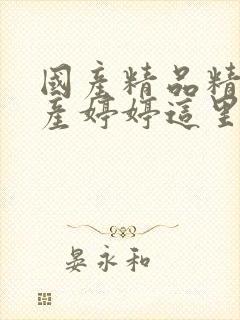 國產精品精
產婷婷這里
晏永和